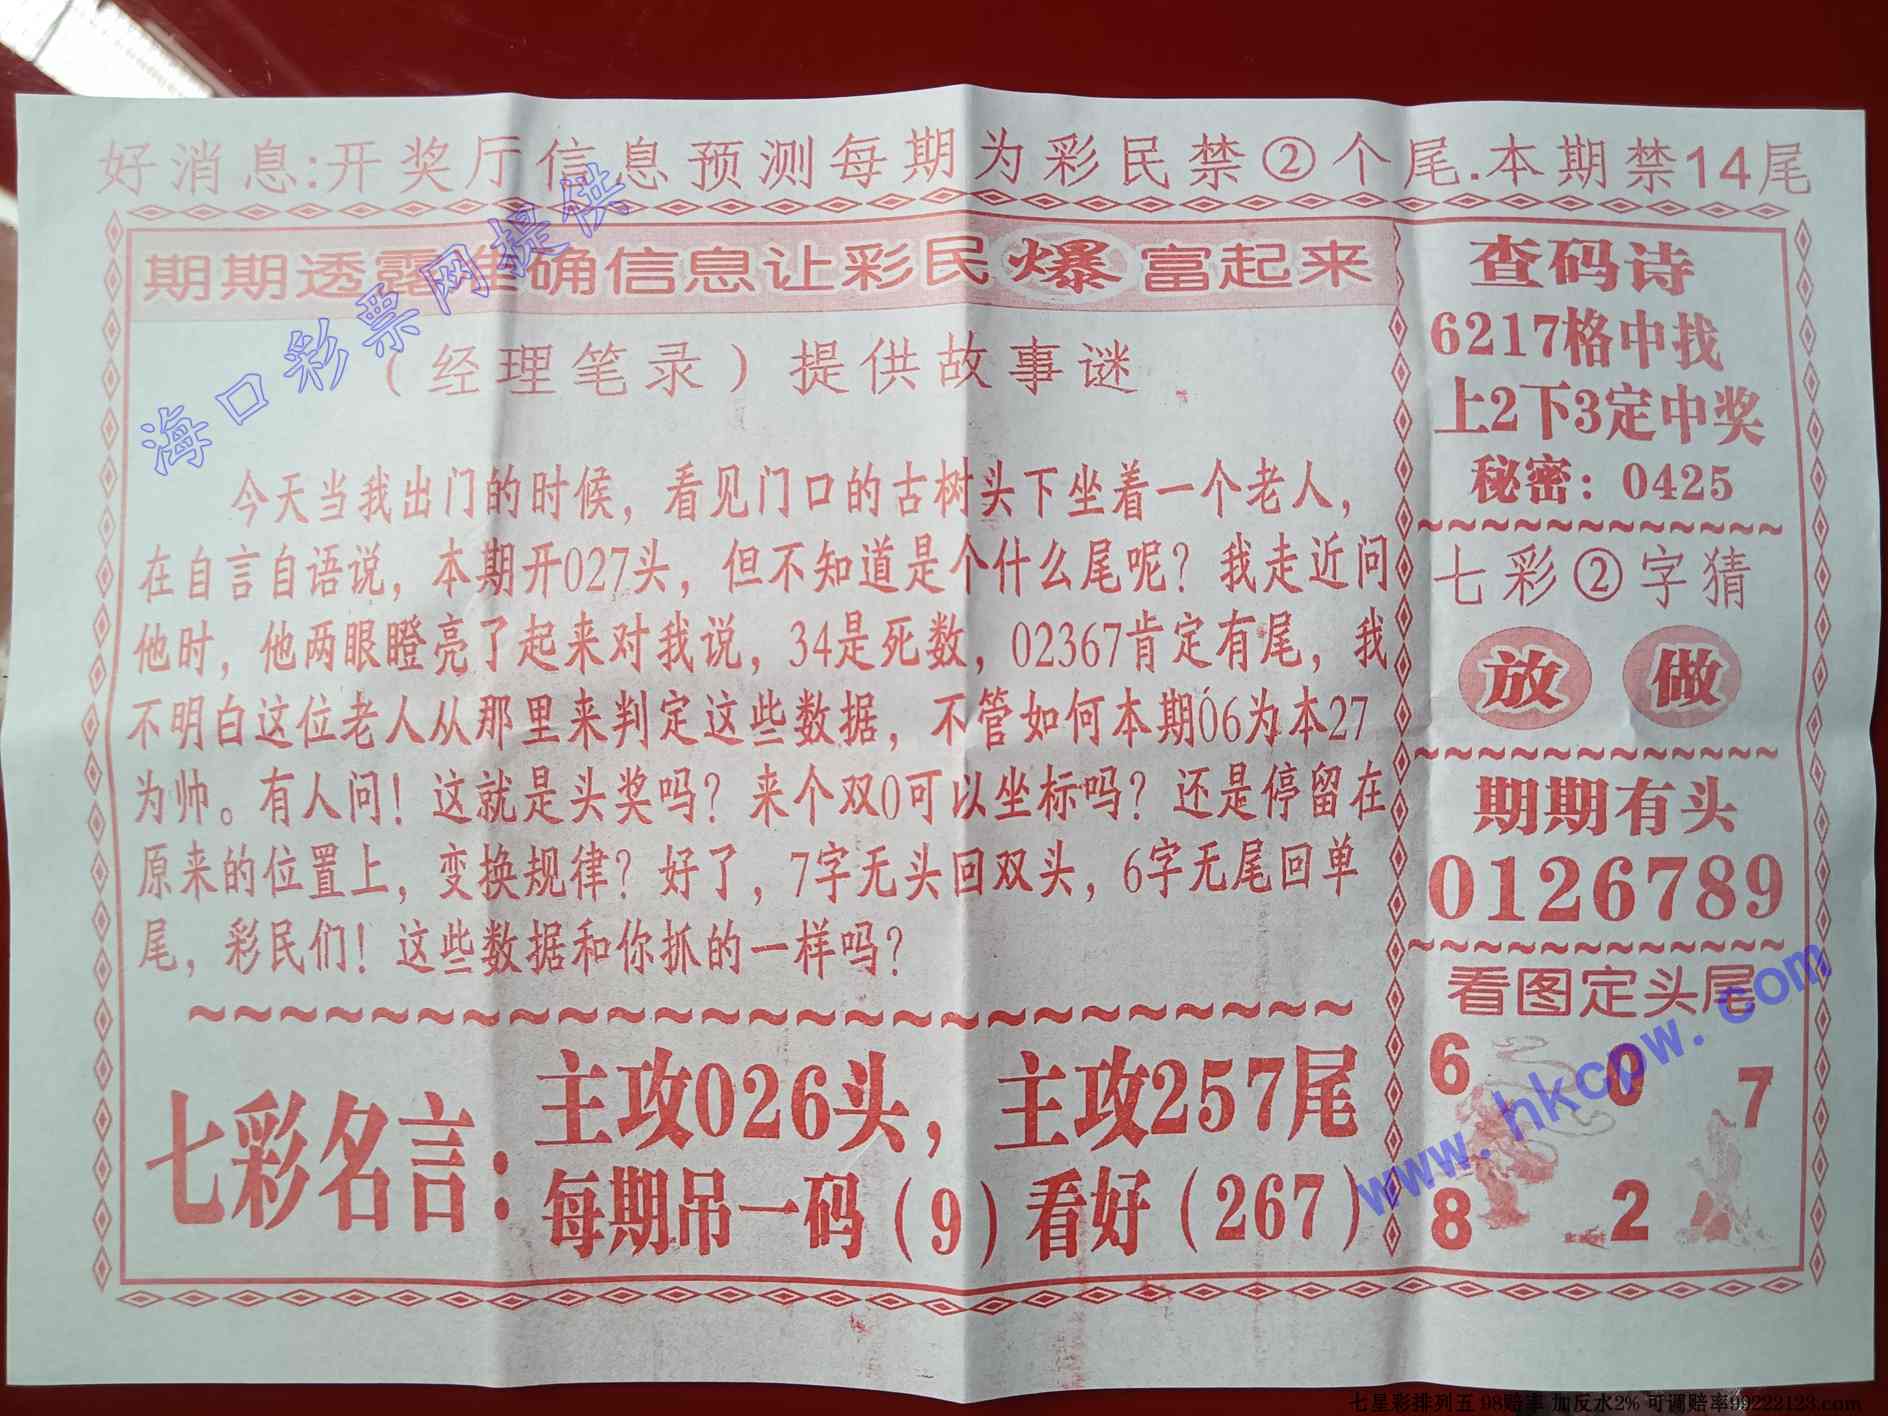 好消息:开奖厅信息预测每期为彩民禁②个尾.本期禁14尾
期期透露准确信息让彩民爆富起来
(经理笔录)提供故事谜
今天当我出门的时候，看见门口的古树头下坐着一个老人，
在自言自语说，本期开027头，但不知道是个什么尾呢？我走近问
他时，他两眼瞪亮了起来对我说，34是死数，02367肯定有尾，我
不明白这位老人从那里来判定这些数据，不管如何本期06为本27
为帅。有人问！这就是头奖吗？来个双0可以坐标吗？还是停留在
原来的位置上，变换规律？好了，7字无头回双头，6字无尾回单
尾，彩民们！这些数据和你抓的一样吗？
七彩名言：
主攻026头，主攻257尾
每期吊一码(9)看好(267)
查码诗
6217格中找
上2下3定中奖
秘密：0425
七彩②字猜
放 做
期期有头
0126789
看图定头尾
6 0 7
8 2
海口彩票网提供
www.hkcpw.com
七星彩排列五 98赔率 加反水2% 可调赔率99222123.com